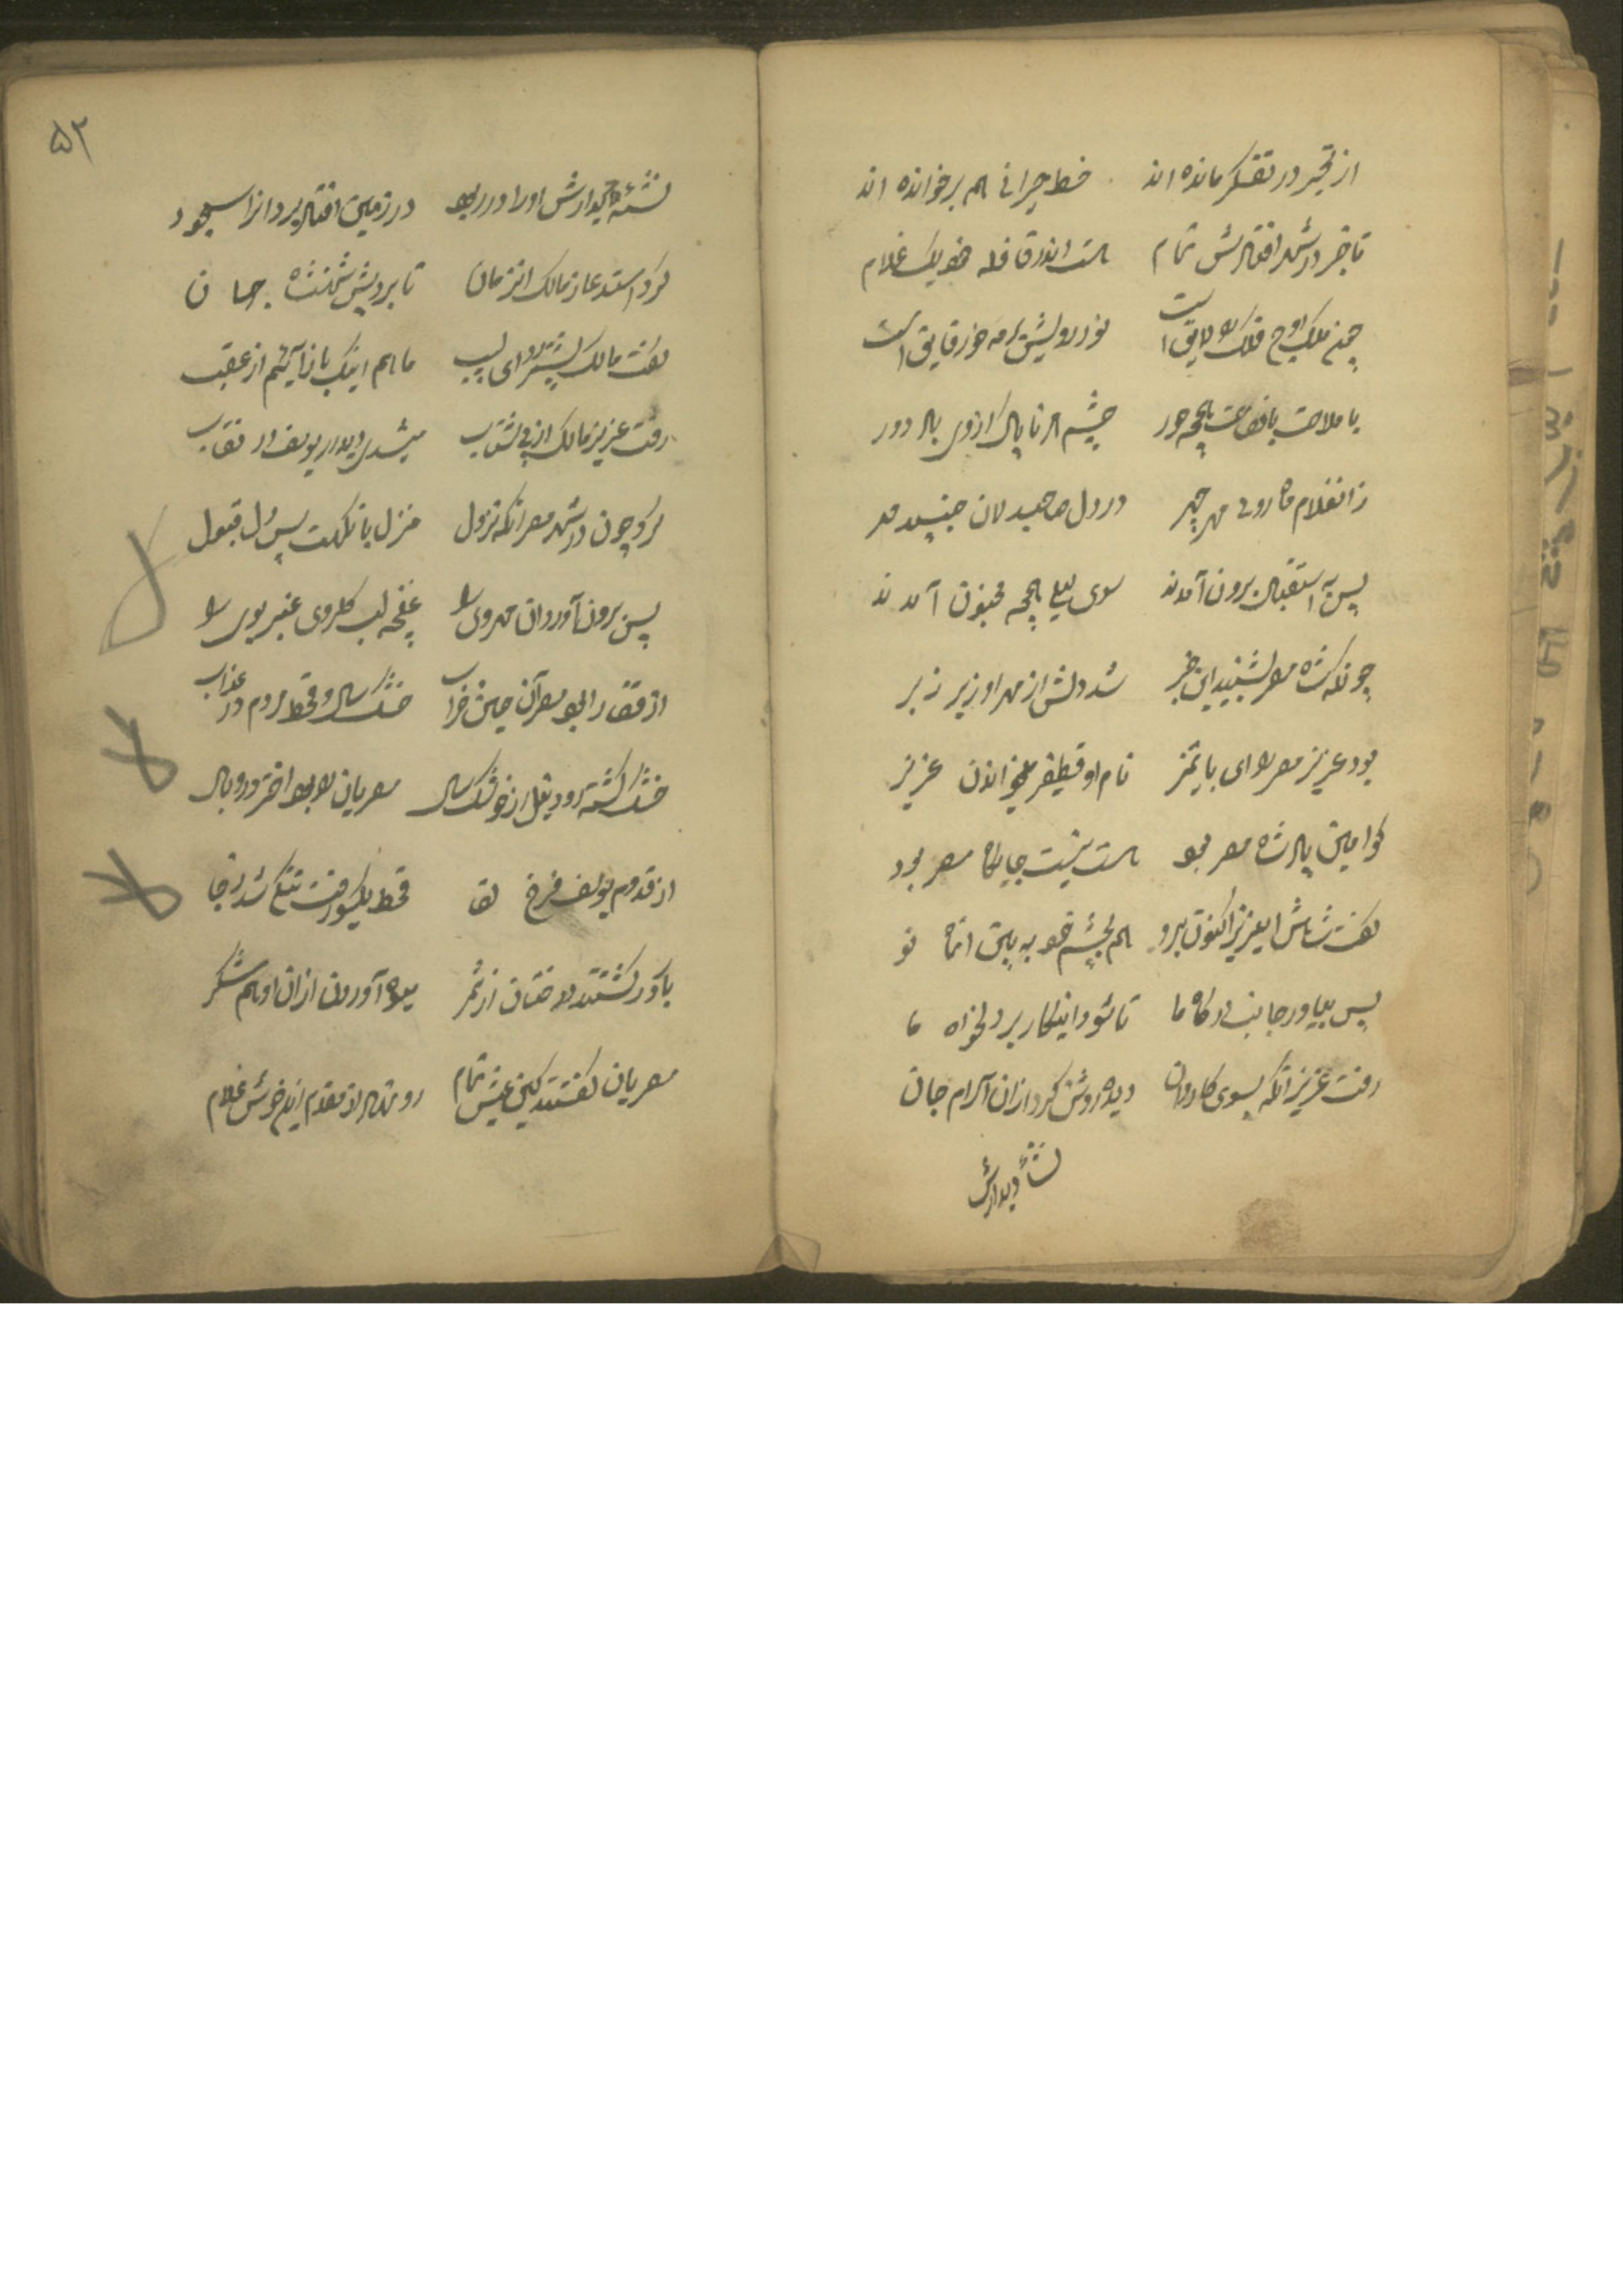 از تحیر در تفکر مانده اند خط حیرانی هم برخوانده اند
تا خبر در شهر افتادش تمام هست اندر قافله خو یک غلام
چون ملک اوج فلک را لایق است نور رویش بر مه و خور فایق است
با ملاحت با فصاحت همچو حور چشم هر ناپاک از وی باد دور
زانغلام ماه روی مهر چهر در دل صاحبدلان جنبید مهر
پس به استقبال برون آمدند سوی لیلی همچه مجنون آمدند
چونکه شاه مصر بشنید این خبر شد دلش از مهر او زیر زبر
بود عزیز مصر را ای با تمیز نام او قطیفر میخواندن عزیز
کو امین پادشاه مصر بود هست نیست جایگاه مصر بود
گفت شاهش ایعزیز اکنون برو هم بچشم خود به بین آن ماه نو
پس بیاور جانب درگاه ما تا شود اینکار بر دلخواه ما
رفت عزیز انگه بسوی کاروان دیده روشن کرد ازان آرام جان
نشأه دیدارش
۵۲
نشئه دیدارش اورا در ربود در زمین افتاد بردانرا سجود
کرد استدعا ز مالک انزمان تا برد پیش شهنشاه جهان
گفت مالک پیشتر رو ای لبیب ما هم اینک باز آئیم از عقب
رفت عزیز مالک از پی شتاب میشدی دیدار یوسف در نقاب
کرد چون در شهر مصر انگه نزول منزل با نکهت پس دل قبول
پس برون آورد آن مهروی را غنچه لب گلروی عنبر بوی را
از قضا را بود مصر آن حین خراب خشک سال و قحط مردم در عذاب
خشک گشته رود نیل از خشک سال مصریان را بود اختر در وبال
از قدوم یوسف فرخ لقا قحط یکسو رفت تنگی شد رخا
بآور گشتند درختان از ثمر میوه آوردن ازان او هم شکر
مصریان گفتند کین عیش تمام رو نهاد از مقدم این خوش غلام